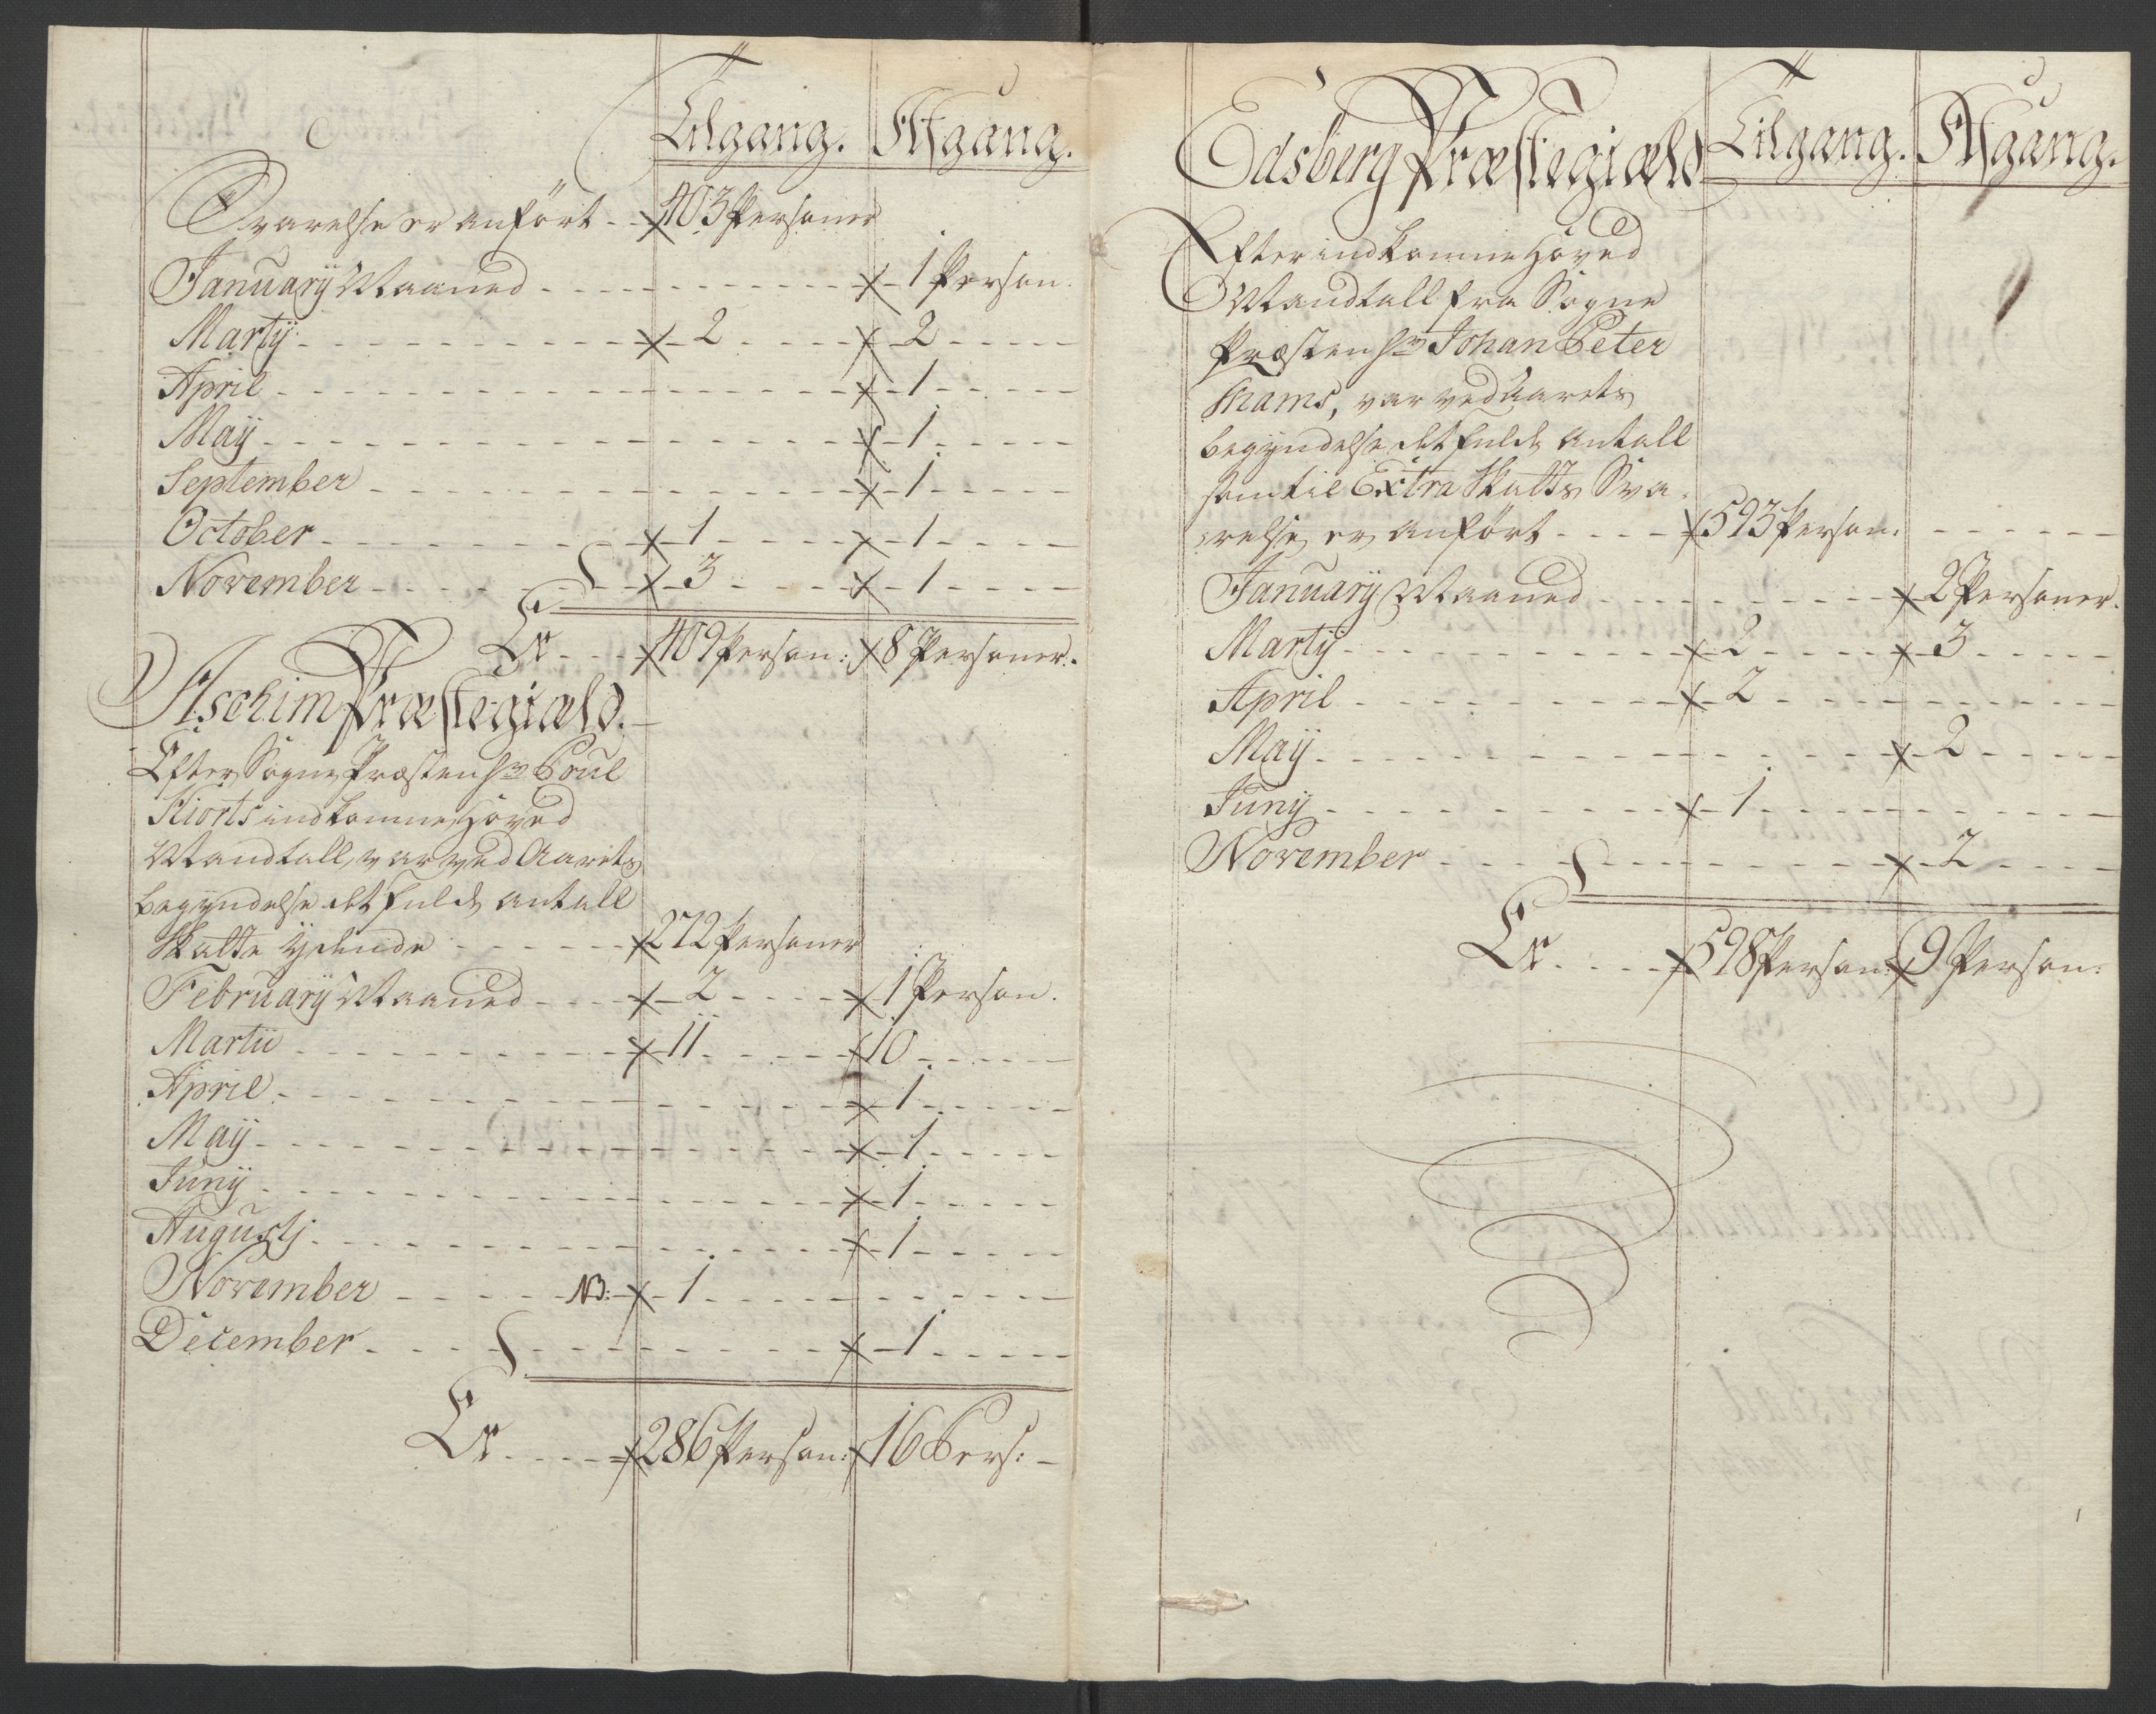 Tilgang. Afgang.
Svarelse er anført - - 403 Personer
January Maaned - - - 1 Person.
Martij - - - 2 - - - 2 - - -
April - - - 1 - - -
Maij - - - 1 - - -
September - - - 1 - - -
October - - - 1 - - - 1 - - -
November - - - 3 - - - 1 - - -
Er - - - 409 Person: 8 Personer.
Aschim Præstegiæld.
Efter Sogne Præsten Hr Poul
Hiorts indkomne Hoved
Mandtall, var ved Aarets
begyndelse det fulde antall
Skatte ydende - - - 272 Personer
February Maaned - - - 2 - - - 1 Person.
Martii - - - 11 - - - 10 - - -
April - - - 1 - - -
Maij - - - 1 - - -
Junij - - - 1 - - -
Augustj - - - 1 - - -
November - - - NB: - 1 - - -
December - - - 1 - - -
Er - - - 286 Person: 16 Pers: -
Edsberg Præstegiæld Tilgang. Afgang.
Efter indkomne Hoved
Mandtall fra Sogne
Præsten Hr Johan Peter
Thams, var ved Aarets
begyndelse det fulde Antall
som til Extra Skatts Sva-
relse er anført - - - 593 Person: - - -
January Maaned - - - 2 Personer.
Martij - - - 2 - - - 3 - - -
April - - - 2 - - -
Maij - - - 2 - - -
Junij - - - 1 - - -
November - - - 2 - - -
Er - - - 598 Person: 9 Person: